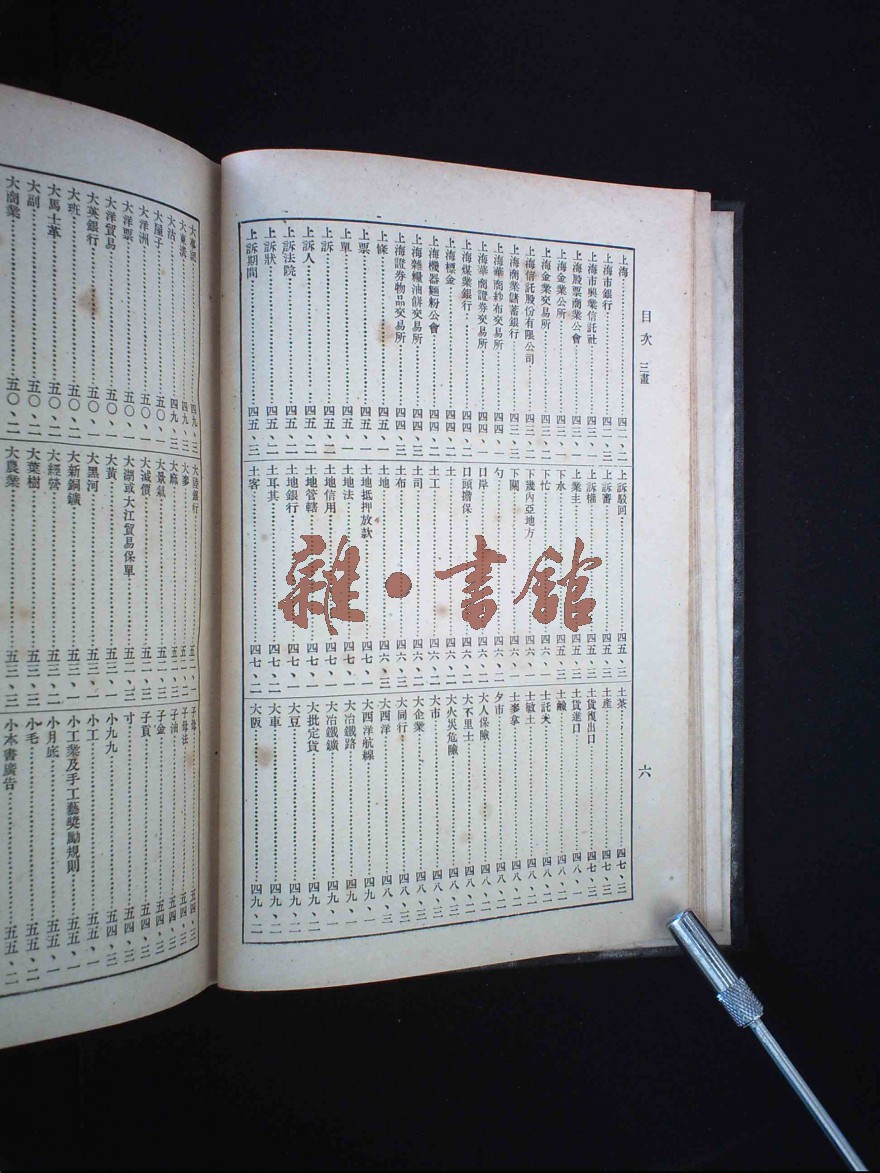 目次 三畫
六
上海 四一、二
上海市銀行 四一、三
上海市興業信託社 四三、一
上海股票商業公會 四三、一
上海金業公所 四三、二
上海金業交易所 四三、二
上海信託股份有限公司 四三、二
上海商業儲蓄銀行 四三、三
上海華商紗布交易所 四四、一
上海華商證券交易所 四四、一
上海煤業銀行 四四、二
上海標金 四四、二
上海機器麵粉公會 四四、二
上海雜糧油餅交易所 四四、三
上海證券物品交易所 四四、三
上條 四五、一
上票 四五、一
上單 四五、一
上訴 四五、二
上訴人 四五、二
上訴法院 四五、二
上訴狀 四五、二
上訴期間 四五、三
上訴駁回 四五、三
上訴審 四五、三
上訴權 四五、三
上業主 四五、三
下水 四五、三
下忙 四六、一
下幾內亞地方 四六、一
下關 四六、一
勺 四六、二
口岸 四六、二
口頭擔保 四六、二
土 四六、二
土工 四六、二
土司 四六、三
土布 四六、三
土地 四六、三
土地抵押放款 四七、一
土地法 四七、一
土地信用 四七、一
土地管轄 四七、一
土地銀行 四七、一
土耳其 四七、二
土客 四七、二
土茶 四七、三
土產 四七、三
土貨復出口 四七、三
土貨進口 四八、一
土鹼 四八、一
士託夫 四八、二
士敏土 四八、二
士麥拿 四八、二
夕市 四八、二
大人保險 四八、二
大不里士 四八、二
大火災危險 四八、二
大市 四八、二
大企業 四八、三
大同行 四八、三
大西洋 四八、三
大西洋航線 四九、一
大冶鐵路 四九、一
大冶鐵鑛 四九、一
大批定貨 四九、二
大豆 四九、二
大車 四九、二
大阪 四九、二
四九、三
大東溝 四九、三
大沽 四九、三
大屋子 五〇、一
大洋洲 五〇、一
大洋票 五〇、一
大洋貿易 五〇、一
大英銀行 五〇、一
大班 五〇、二
大馬士革 五〇、二
大副 五〇、二
大商業 五〇、二
大陸銀行 五二、一
大麥 五二、二
大麻 五二、三
大景氣 五二、三
大減價 五二、三
大湖或大江貿易保單 五二、三
大黃 五三、一
大黑河 五三、一
大新銅鑛 五三、一
大經營 五三、二
大葉樹 五三、三
大農業 五三、三
子母 五四、三
子母法 五四、三
子油 五四、三
子金 五四、三
子貢 五四、三
寸 五四、三
小九九 五四、三
小工 五五、一
小工業及手工藝獎勵規則 五五、一
小月底 五五、一
小毛 五五、二
小本書廣告 五五、二
雜·書館